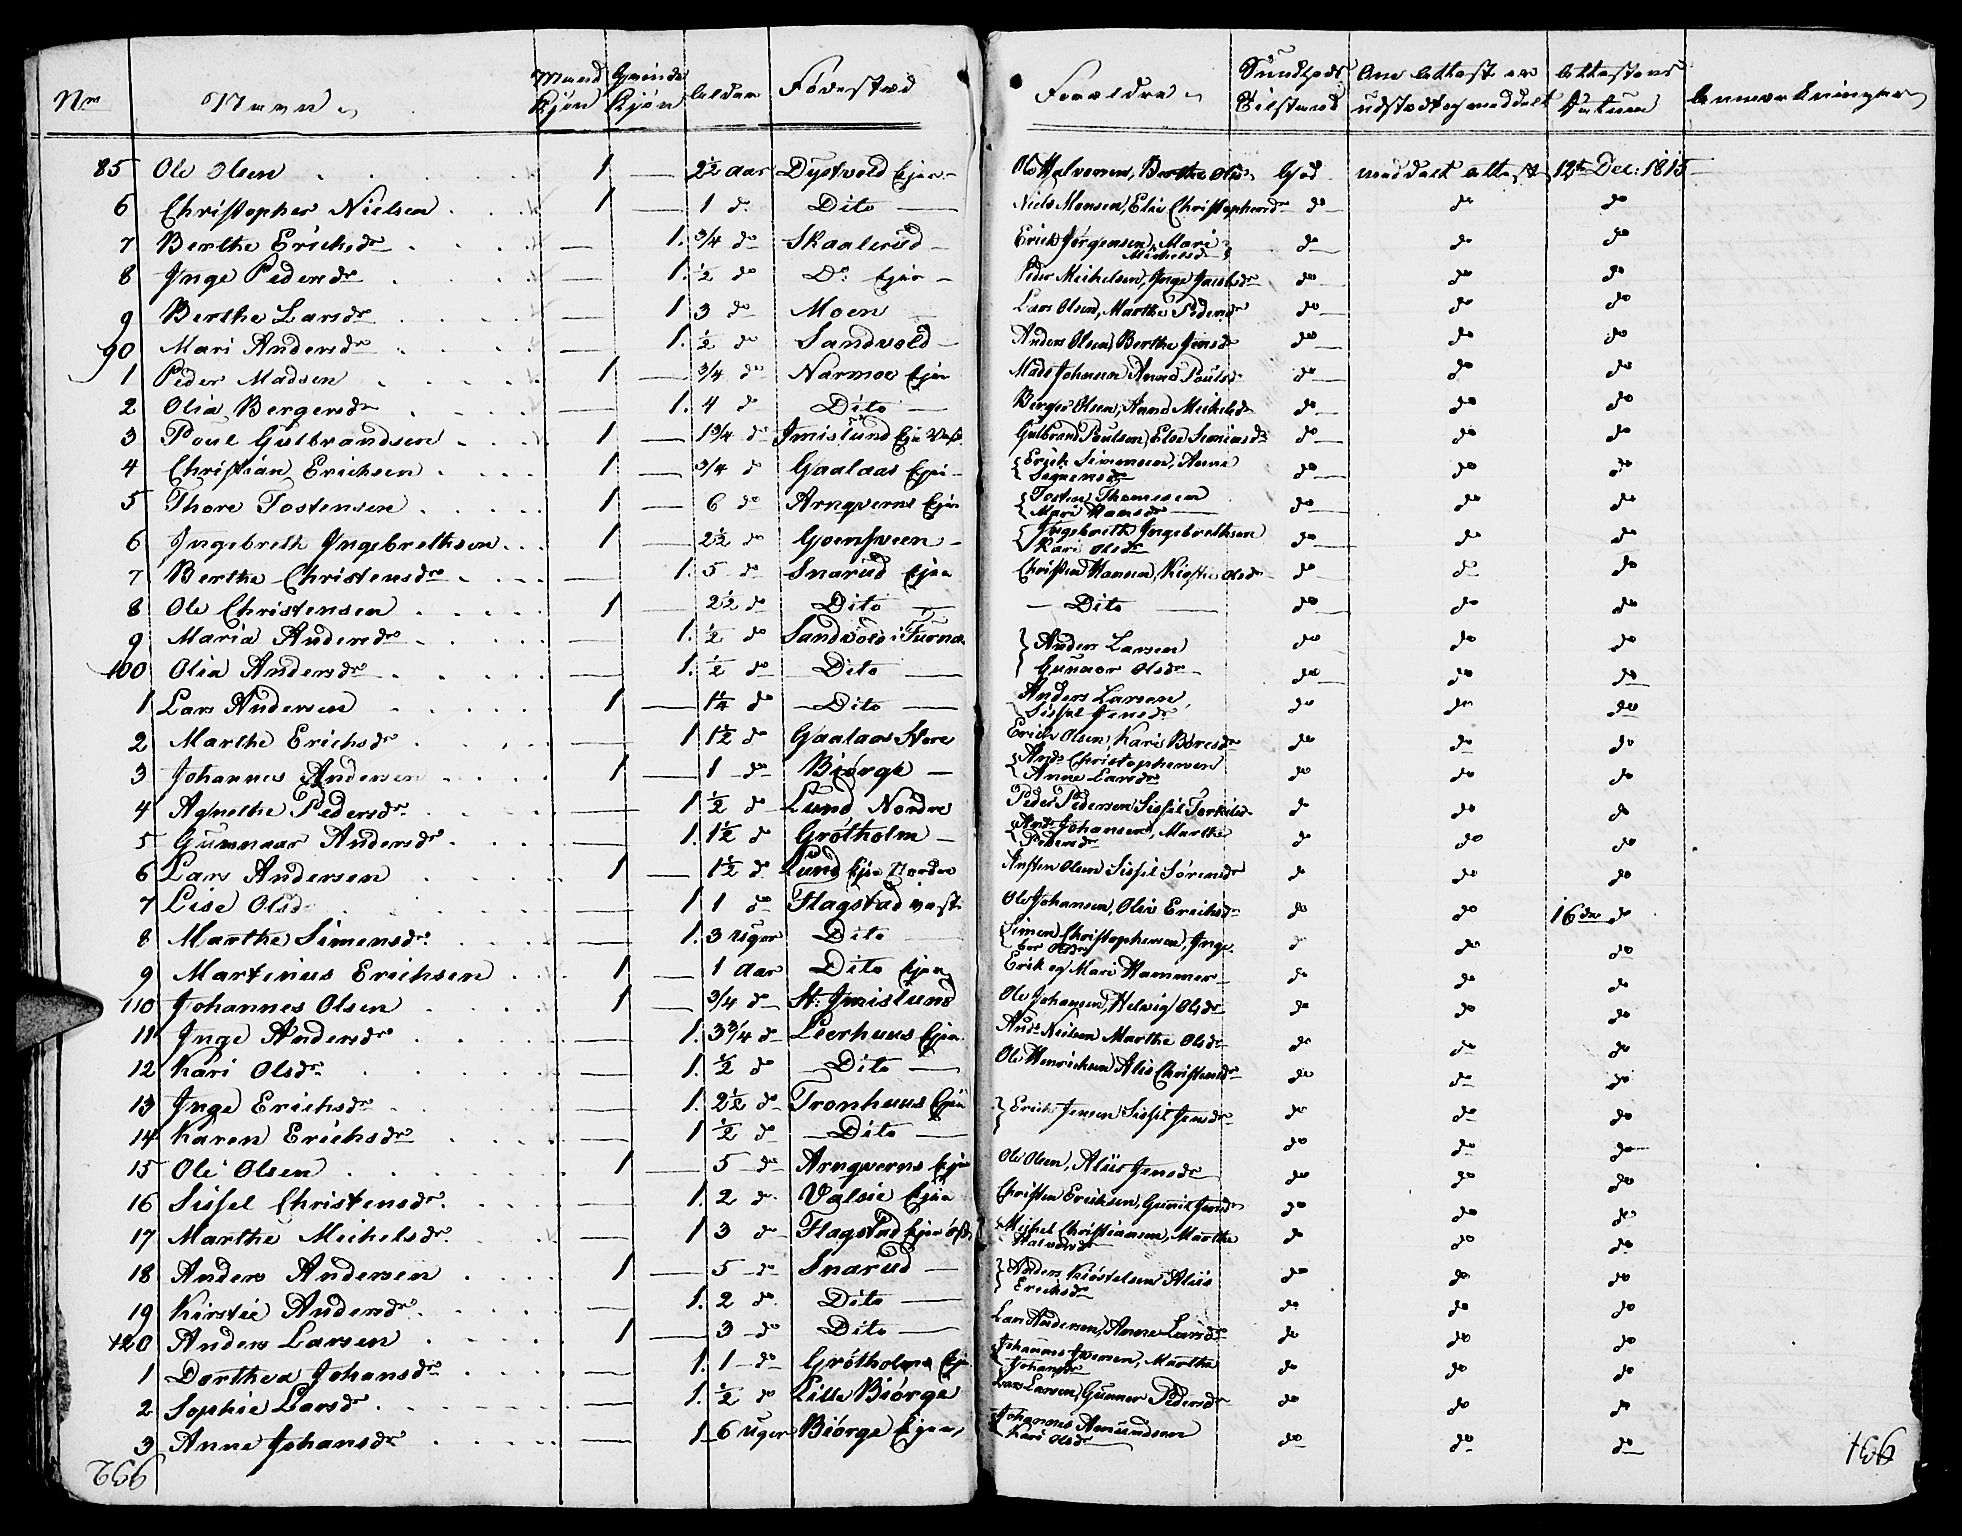 Nr Navn Mand Kjøn Qvinde Kjøn Alder Fødested Forældre Sundheds Tilstand Om Attest er udstædt og meddelt Attestens Datum Anmærkninger
85 Ole Olsen 1 — 2½ Aar Dystvold Eje Ole Halvorsen, Berthe Olsd. God meddelt attest 12te Dec: 1815
6 Christopher Nielsen 1 — 1 do Dito Niels Monsen, Elie Christophersdr do do do
7 Berthe Erichsdr — 1. 3/4 do Skaalerud Erich Jørgensen, Mari Michelsdr do do do
8 Inge Pedersdr — 1. ½ do Do Eje Peder Michelsen, Inge Jacobsdr do do do
9 Berthe Larsdr — 1 3 do Moen Lars Olsen, Marthe Pedersdr do do do
90 Mari Andersdr — 1. ½ do Sandvold Anders Olsen, Berthe Jensdr do do do
1 Peder Madsen 1 — 3/4 do Narmoe Eje Mads Johansen Anne Poulsd. do do do
2 Olia Bergersdr — 1. 4 do Dito Berger Olsen, Anne Michelsdr do do do
3 Poul Gulbrandsen 1 — 1 3/4 do Imislund Eje Vest Gulbrand Poulsen, Eloe Simensdr do do do
4 Christian Erichsen 1 — 3/4 do Gaalaas Eje Erich Simensen, Anne do do do
5 Thore Tostensen 1 — 6 do Arnqverns Eje Tosten Thomesen Mari Hansdr do do do
6 Ingebreth Ingebrethsen 1 — 2½ do Ingebreth Ingebrethsen Kari Olsdr do do do
7 Berthe Christensdr — 1. 5 do Snarud Eje Christen Hansen, Kirstie Olsdr do do do
8 Ole Christensen 1 — 2½ do Dito — Dito — do do do
9 Maria Andersdr — 1. ½ do Sandvold i Furnæs Anders Larsen do do do
100 Olia Andersdr — 1. ½ do Dito Gunnor Olsdr do do do
1 Lars Andersen 1 — 1¼ do Dito Anders Larsen, Sissel Jensdr do do do
2 Marthe Erichsdr — 1 1½ do Gaalaas Store Erich Olsen, Kari Boresdr do do do
3 Johannes Andersen 1 — 1 do Biørge Ands Christophersen Anne Larsdr do do do
4 Agnethe Pedersdr — 1 ½ do Lund Nordre Peder Pedersen Sissel Torkilsd. do do do
5 Gunnaar Andersdr — 1. 1½ do Grøtholm Ands Johansen, Marthe Pedersdr do do do
6 Lars Andersen 1 — 1½ do Lund Eje Nordre Olsen Sissel Sørensdr do do do
7 Lise Olsd — 1 1 do Flagstad vest Ole Johansen, Olia Erichsdr do do 16de do
8 Marthe Simensdr — 1. 3 Uger Dito Simen Christophersen, Ingebor Olsdr do do do
9 Martinus Erichsen 1 — 1 Aar Dito Eje Erik og Mari Hammer do do do
110 Johannes Olsen 1 — 3/4 do St: Imislund Ole Johansen, Helvig Olsdr do do do
11 Inge Andersdr — 1. 3 3/4 do Leerhuus Eje Ands Nielsen Marthe Olsdr do do do
12 Kari Olsdr — 1. ½ do Dito Ole Henrichsen Alis Christensdr do do do
13 Inge Erichsdr — 1. 2½ do Tronhuus Eje Erich Jensen Sissil Jensdr do do do
14 Karen Erichsdr — 1 ½ do Dito do do do
15 Ole Olsen 1 — 5 do Arnqverns Eje Ole Olsen, Aliis Jensdr do do do
16 Sissel Christensdr — 1. 2 do Valsie Eje Christen Erichsen, Gunil Jensdr do do do
17 Marthe Michelsdr — 1 3 do Flagstad Eje øst Michel Christiansen, Marthe Halvorsdr do do do
18 Anders Andersen 1 — 5 do Snarud Anders Kiøstelsen Aliis Erichsdr do do do
19 Kirstie Andersdr — 1. 2 do Dito do do do
120 Anders Larsen 1 — 3 do Dito Lars Andersen, Anne Larsdr do do do
1 Dorthea Johansdr — 1. 1 do Grøtholms Eje Johannes Iversen, Marthe Johansdr do do do
2 Sophie Larsdr — 1. ½ do Lille Biørge Lars Larsen, Gunner Pedersdr do do do
3 Anne Johansdr — 1 6 Uger Biørge Eje Johannes Amundsen Kari Olsdr do do do